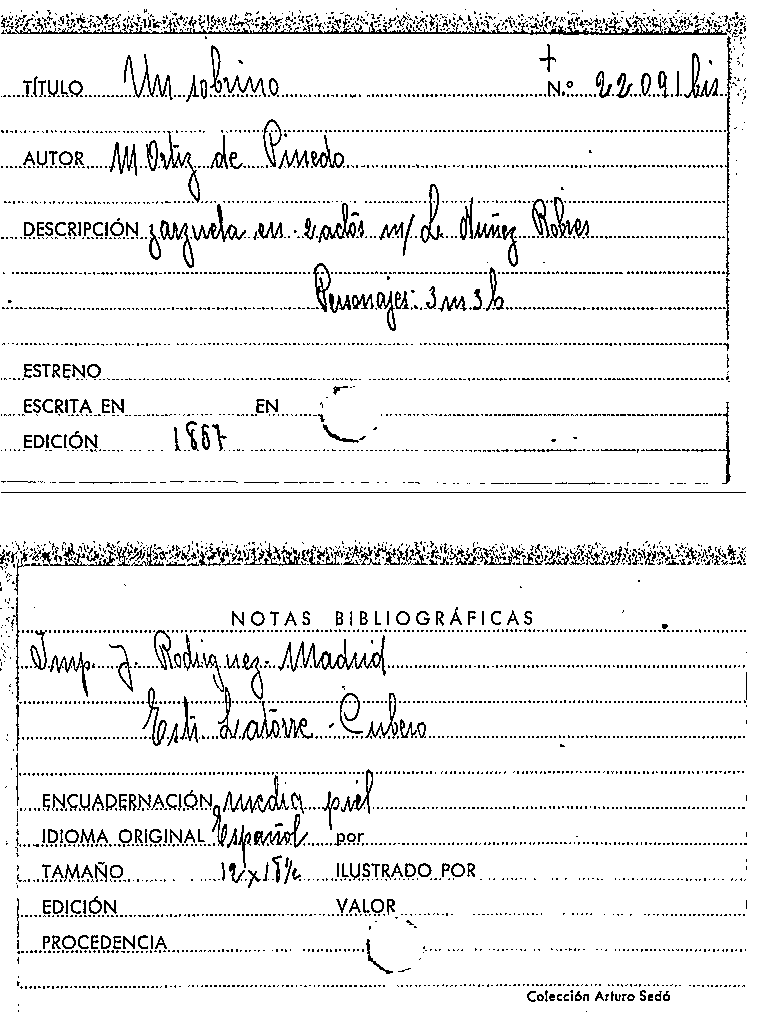 TÍTULO Un sobrino N.º 22091 bis
AUTOR M Ortiz de Pinedo
DESCRIPCIÓN zarzuela en 2 actos m/ L. Núñez Robres
Personajes: 3 m 3 h
ESTRENO
ESCRITA EN EN
EDICIÓN 1867
NOTAS BIBLIOGRÁFICAS
Imp. J. Rodriguez. Madrid
Estr. Latorre - Cubero
ENCUADERNACIÓN media piel
IDIOMA ORIGINAL Español por
TAMAÑO 12 x 18½ ILUSTRADO POR
EDICIÓN VALOR
PROCEDENCIA
Colección Arturo Sedó